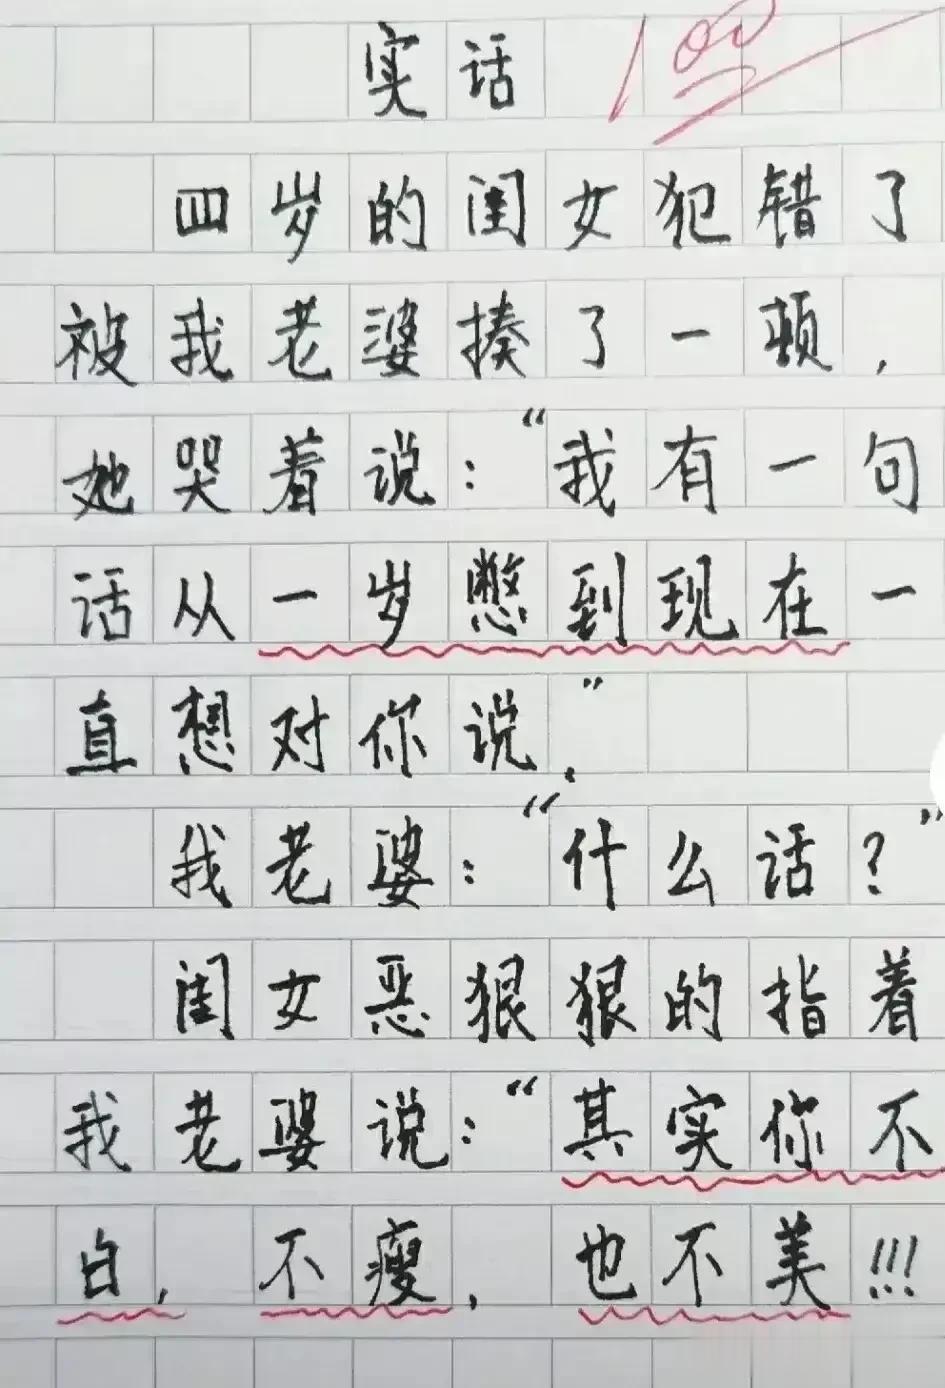 实话 100
四岁的闺女犯错了
被我老婆揍了一顿，
她哭着说：“我有一句
话从一岁憋到现在一
直想对你说。”
我老婆：“什么话？”
闺女恶狠狠的指着
我老婆说：“其实你不
白，不瘦，也不美!!!